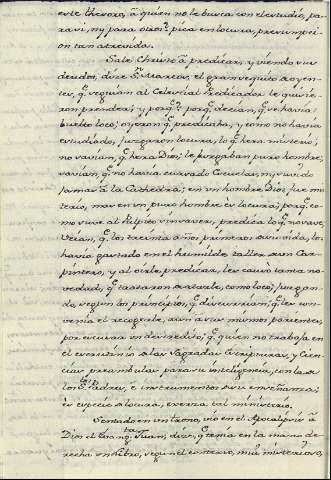 este thesoro, â quien no le busca con el estudio, pa-
ra si, ny para otros? pica en locura, presumpci-
on tan atrevida.
Sale Christo â predicar, y viendo sus
deudos, dice Sn. Marcos, el gran sequito de oyen-
tes, q. seguian al Celestial Predicador le quisie-
ron prender; y porq.? porq. decian, q. se havia
buelto loco; oyeron q. predicaba, y como no havia
estudiado, juzgaron locura, lo q. hera misterio;
no savian, q. hera Dios; le juzgaban puro hombre;
savian, q. no havia cursado Escuelas, ny
jamas â la Cathedra; en un hombre Dios fue mis-
terio, mas en un puro hombre es locura; porq. co-
mo sube al Pulpito sin saver, predica lo q. no save.
Veian, q. los treinta años primeros de su vida, los
havia gastado en el humilde taller de un Car-
pintero, y al oirle predicar, les causo tanta no-
vedad, q. trataron de atarle, como loco; juzgan-
do, segun los principios, q. discurrian, q. les con-
venia el recogerle, aun a sus mismos parientes,
por escusar un descredito; q. quien no trabaja en
el estudio de las Sagradas Escripturas, y Cien-
cias preambulas para su inteligencia, con la de
los Ps. Padres, è instrumentos de su enseñanza;
es especie de locura, exerza tal ministerio.
Sentado en un trono, vio en el Apocalipsis â
Dios el Evangta. Juan; dice, q. tenia en la mano de-
recha un libro, segun el contexto, mui misterioso,